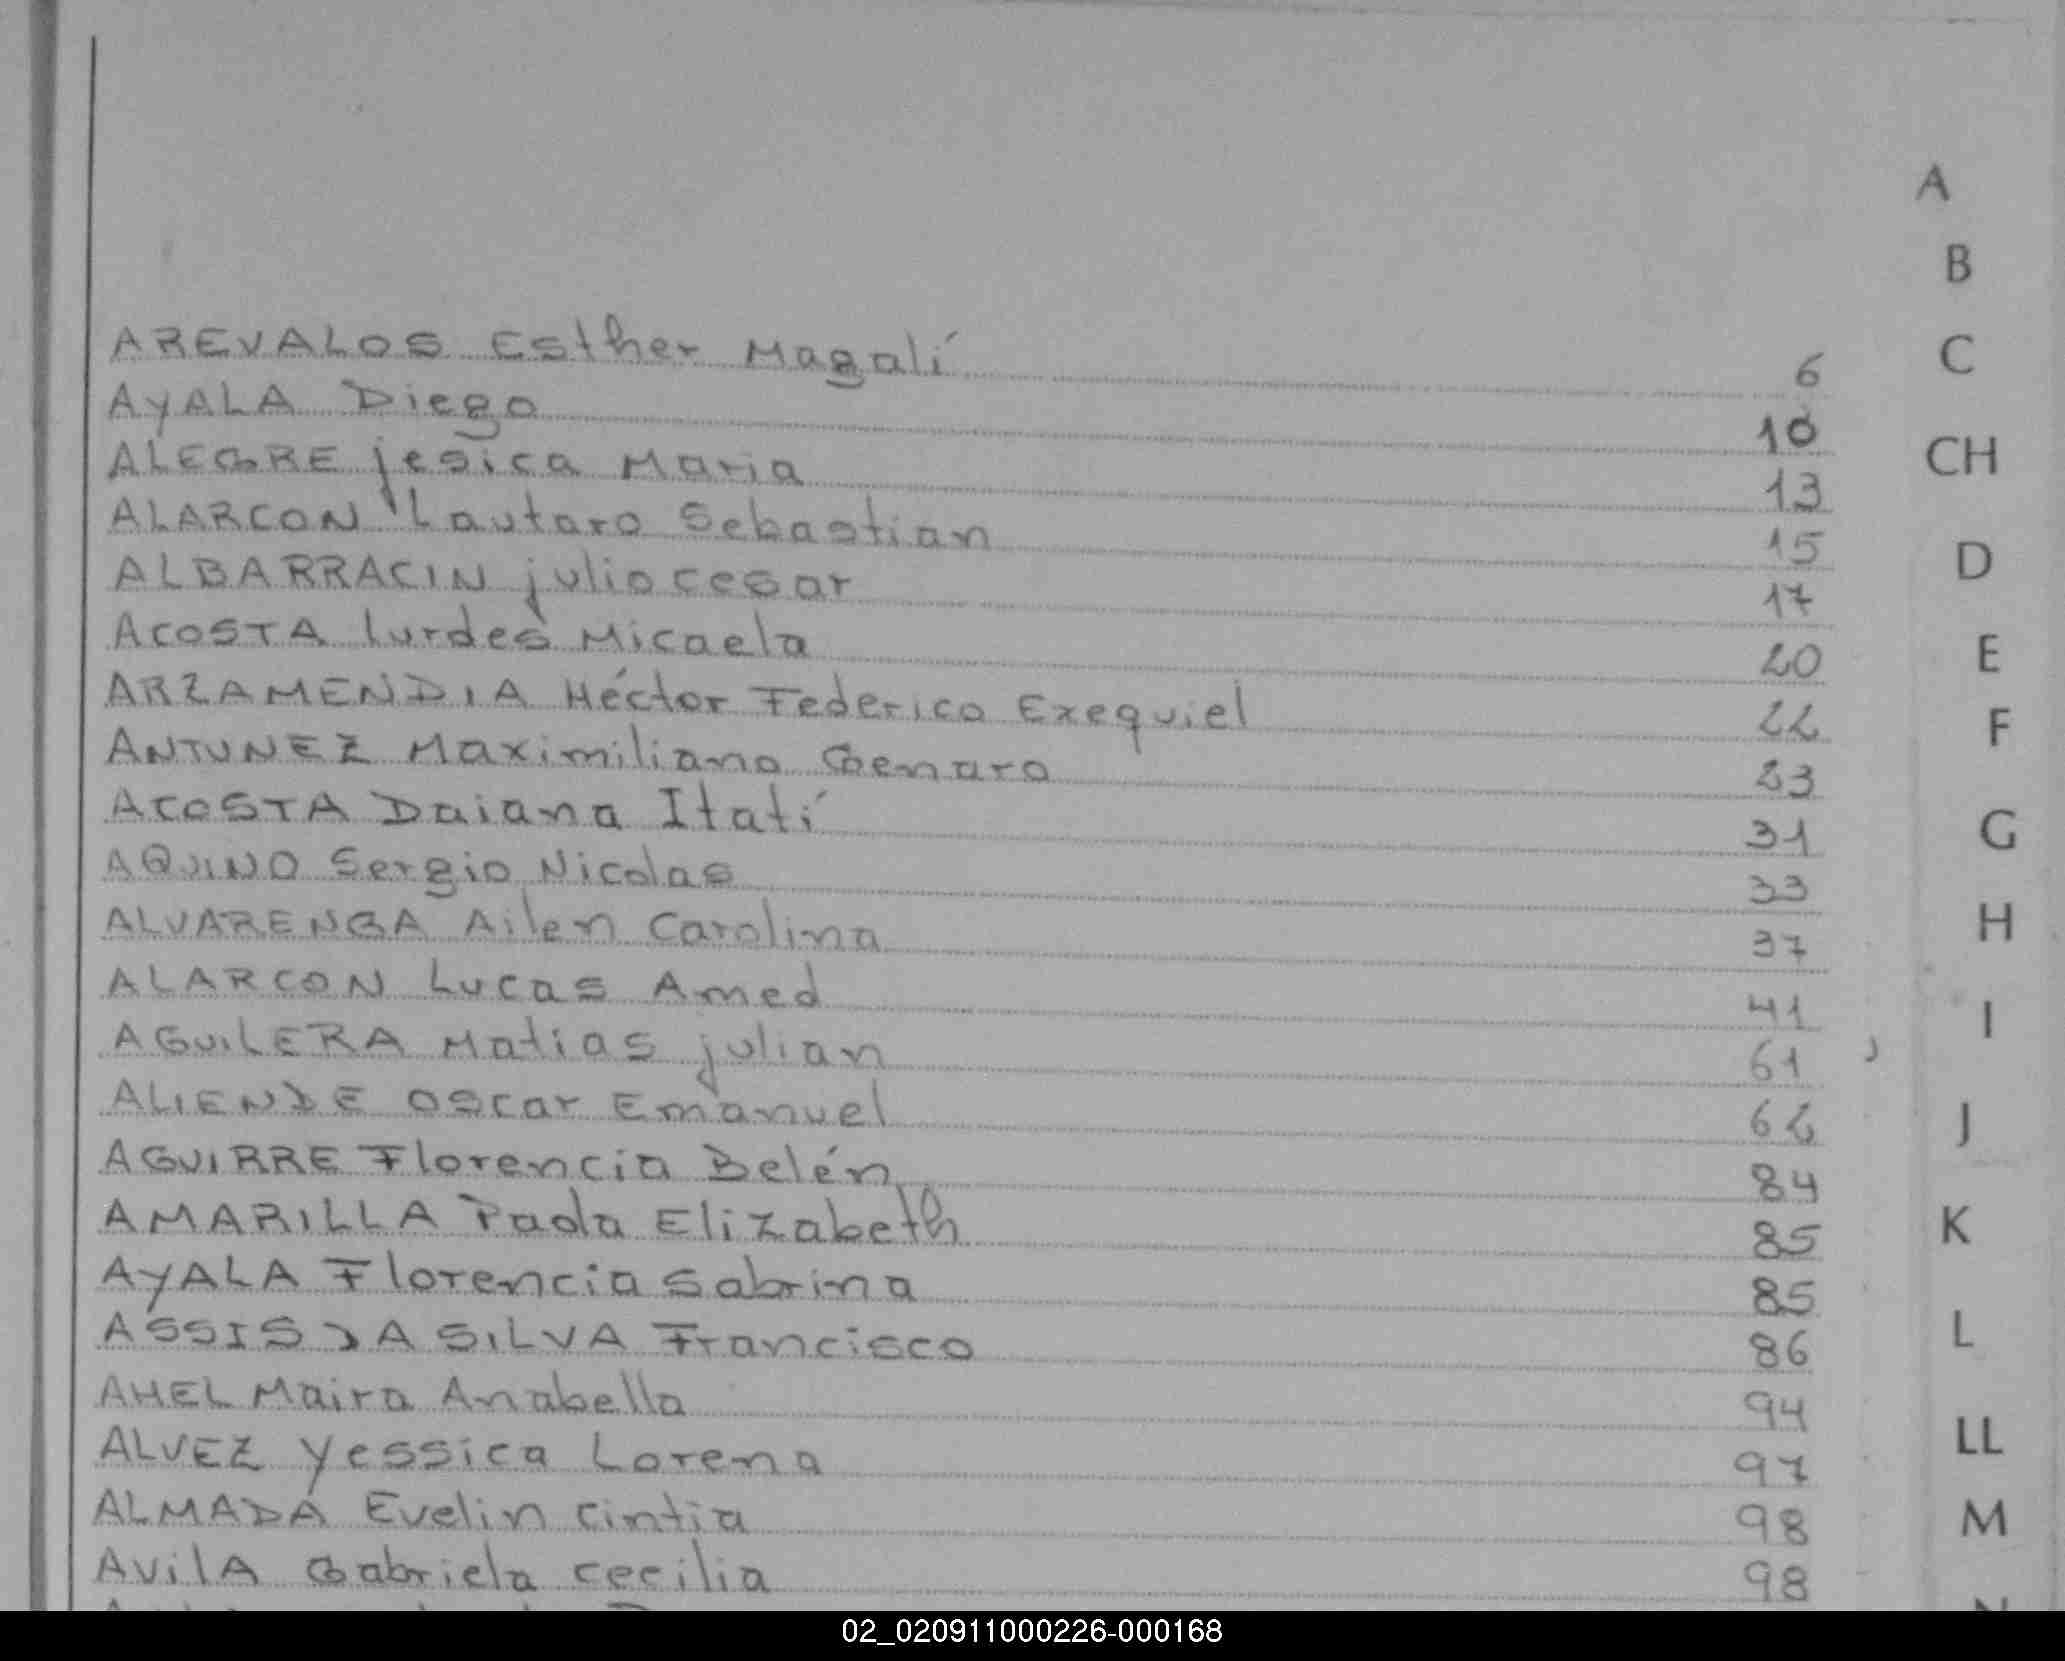 AREVALOS Esther Magalí 6
AYALA Diego 10
ALEGRE jesica Maria 13
ALARCON Lautaro Sebastian 15
ALBARRACIN julio cesar 17
ACOSTA Lurdes Micaela 20
ARZAMENDIA Héctor Federico Exequiel 22
ANTUNEZ Maximiliano Genaro 23
ACOSTA Daiana Itatí 31
AQUINO Sergio Nicolas 33
ALVARENGA Ailen Carolina 37
ALARCON Lucas Amed 41
AGUILERA Matias julian 61
ALIENDE Oscar Emanuel 62
AGUIRRE Florencia Belén 84
AMARILLA Paola Elizabeth 85
AYALA Florencia Sabrina 85
ASSIS DA SILVA Francisco 86
AHEL Maira Anabella 94
ALVEZ Yessica Lorena 97
ALMADA Evelin cintia 98
AVILA Gabriela cecilia 98
A
B
C
CH
D
E
F
G
H
I
J
K
L
LL
M
02_020911000226-000168